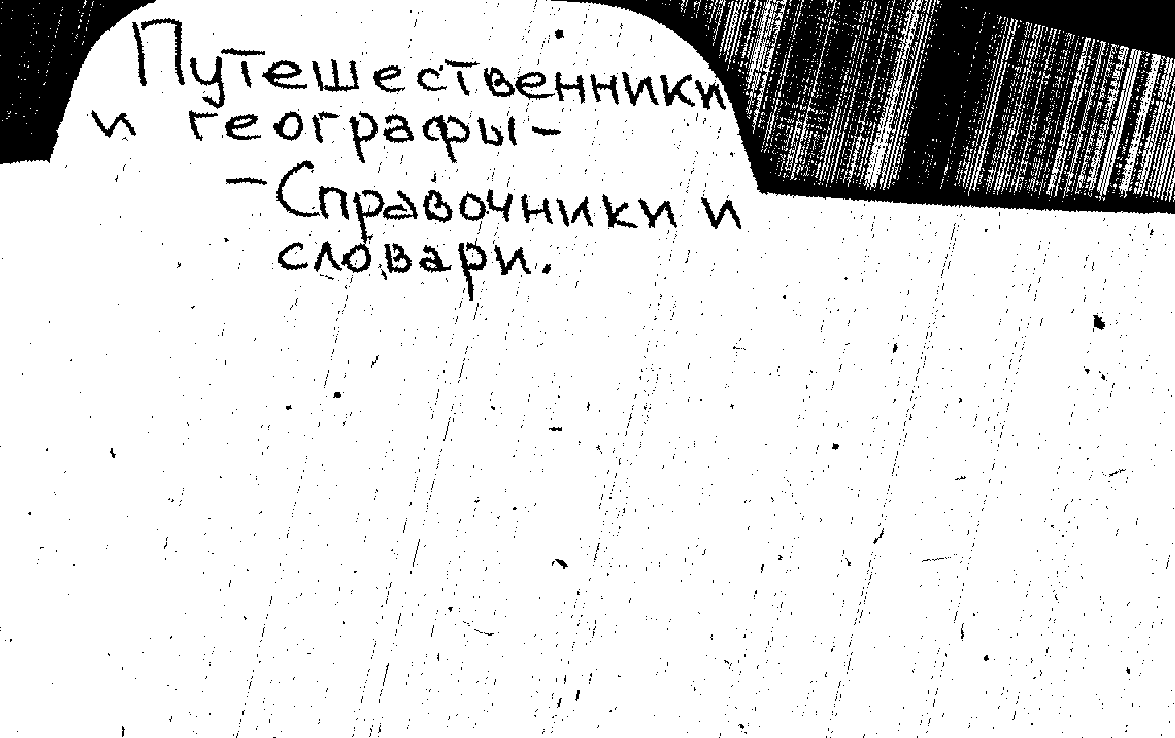 Путешественники
и географы -
- Справочники и
словари.